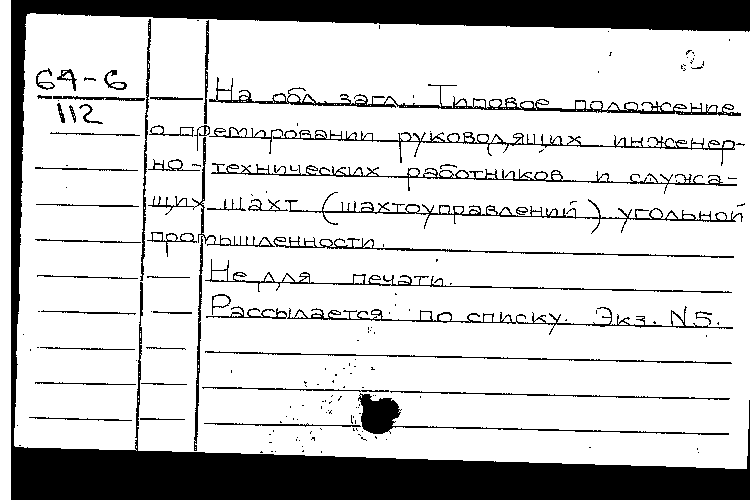 2
64-6
112
На обл. загл.: Типовое положение
о премировании руководящих инженер-
но-технических работников и служа-
щих шахт (шахтоуправлений) угольной
промышленности.
Не для печати.
Рассылается по списку. Экз. N5.